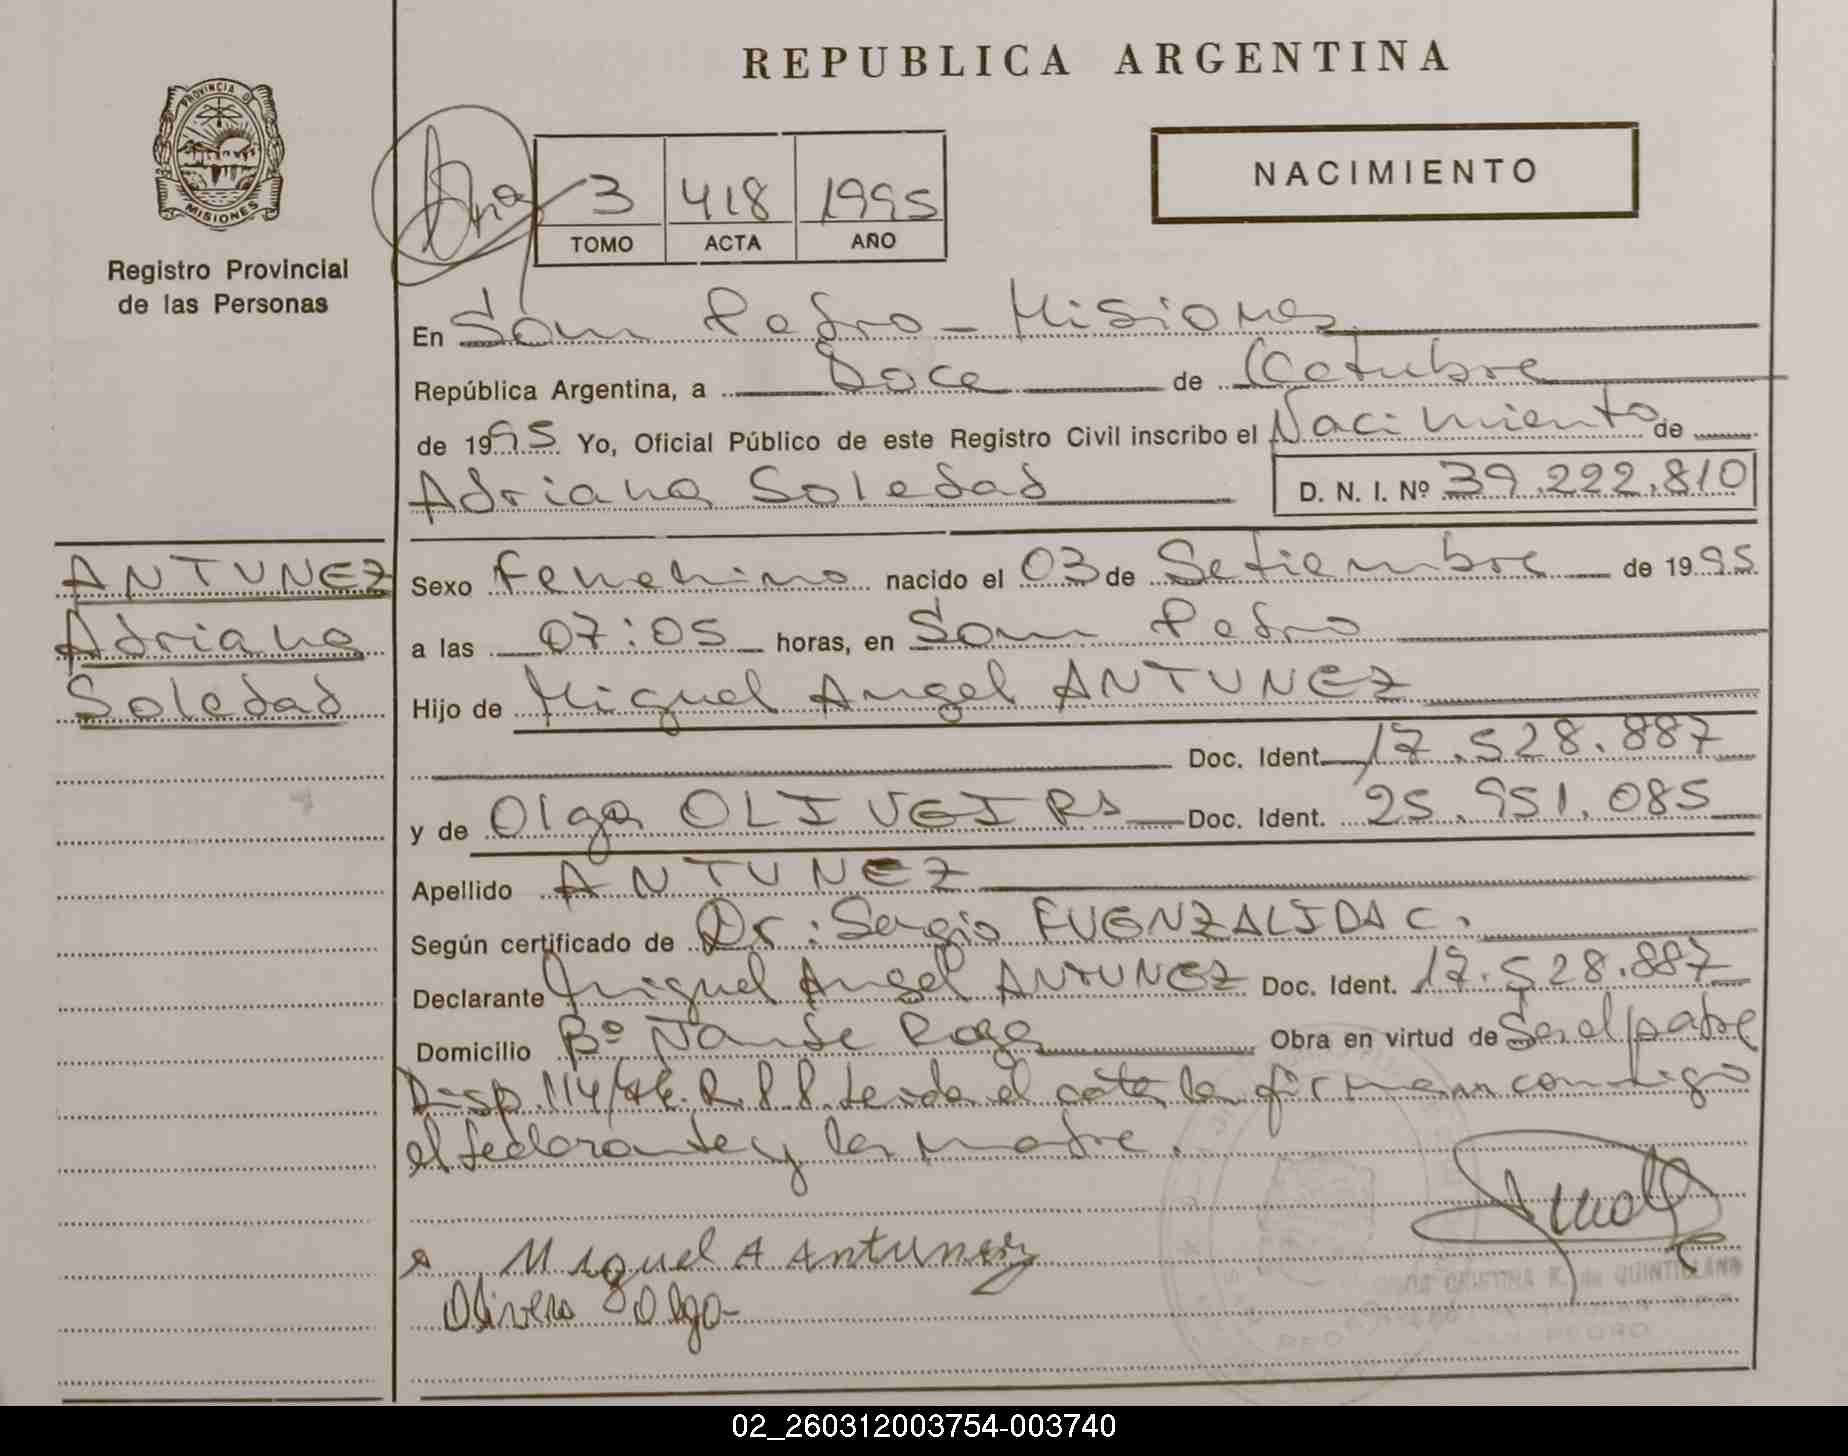 REPUBLICA ARGENTINA
PROVINCIA D
MISIONES
Registro Provincial
de las Personas
3 418 1995
TOMO ACTA AÑO
NACIMIENTO
En San Pedro - Misiones
República Argentina, a Doce de Octubre
de 1995 Yo, Oficial Público de este Registro Civil inscribo el Nacimiento de
Adriana Soledad D. N. I. Nº 39.222.810
ANTUNEZ
Adriana
Soledad
Sexo Femenino nacido el 03 de Setiembre de 1995
a las 07:05 horas, en San Pedro
Hijo de Miguel Angel ANTUNEZ
Doc. Ident. 17.528.887
y de Olga OLIVEIRA Doc. Ident. 25.951.085
Apellido ANTUNEZ
Según certificado de Dr: Sergio FUENZALIDA C.
Declarante Miguel Angel ANTUNEZ Doc. Ident. 17.528.887
Domicilio Bº Obra en virtud de Ser el padre
Disp. 114/ R. P. P. Leida el acta la firman conmigo
el declarante y la madre.
Miguel A Antunez
Olivera Olga
CRISTINA R. de QUINTILLANA
PEDRO
02_260312003754-003740